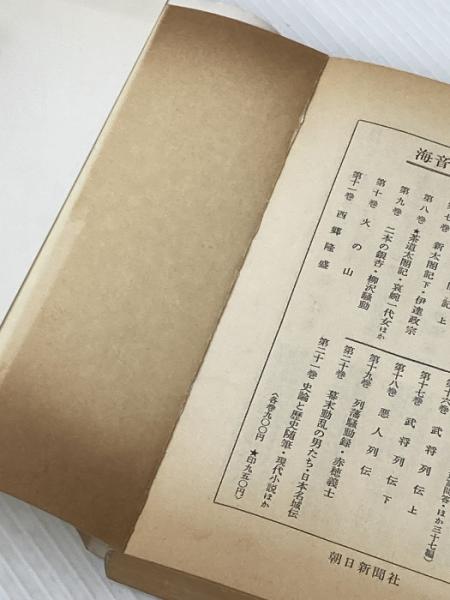 海音
第七巻 新太閤記 上
第八巻 新太閤記 下・伊達政宗
第九巻 ★茶道太閤記・哀婉一代女ほか
第十巻 二本の銀杏・柳沢騒動
第十一巻 火の山
西郷隆盛
第十六巻 ほか三十七編
第十七巻 武将列伝 上
第十八巻 武将列伝 下
第十九巻 悪人列伝
第二十巻 列藩騒動録・赤穂義士
第二十一巻 幕末動乱の男たち・日本名城伝
史論と歴史随筆・現代小説ほか
〈各巻九〇〇円 ★印九五〇円〉
朝日新聞社